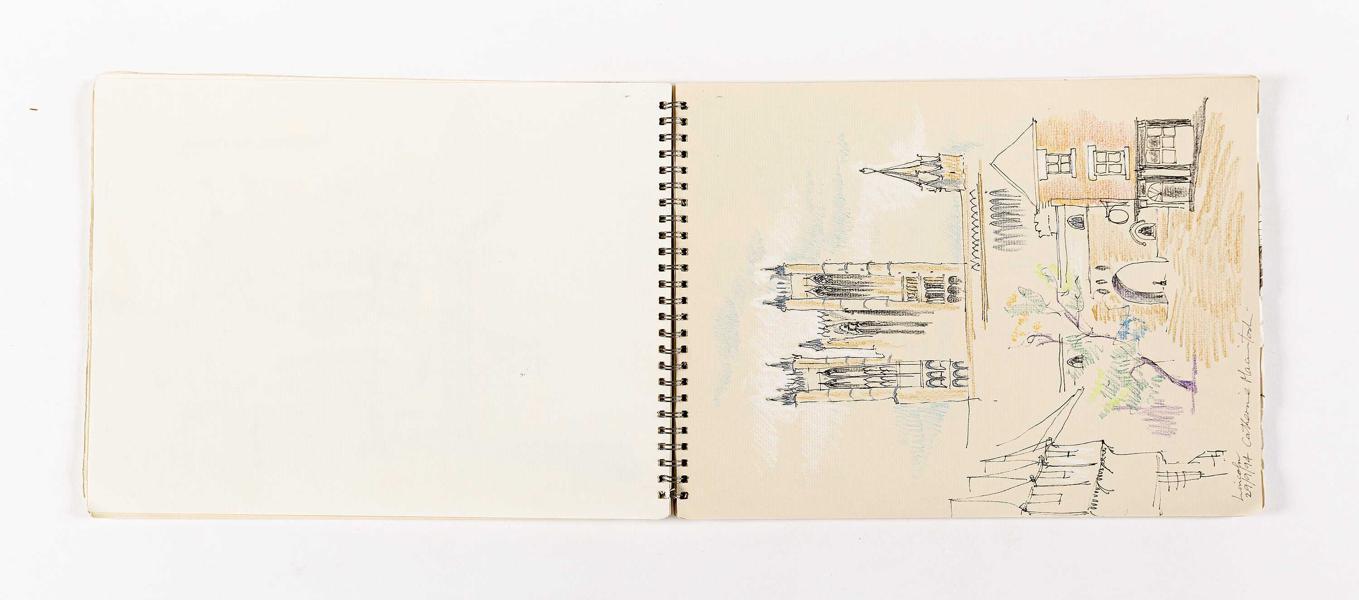 Lincoln
29/9/94 Catherine Macintosh